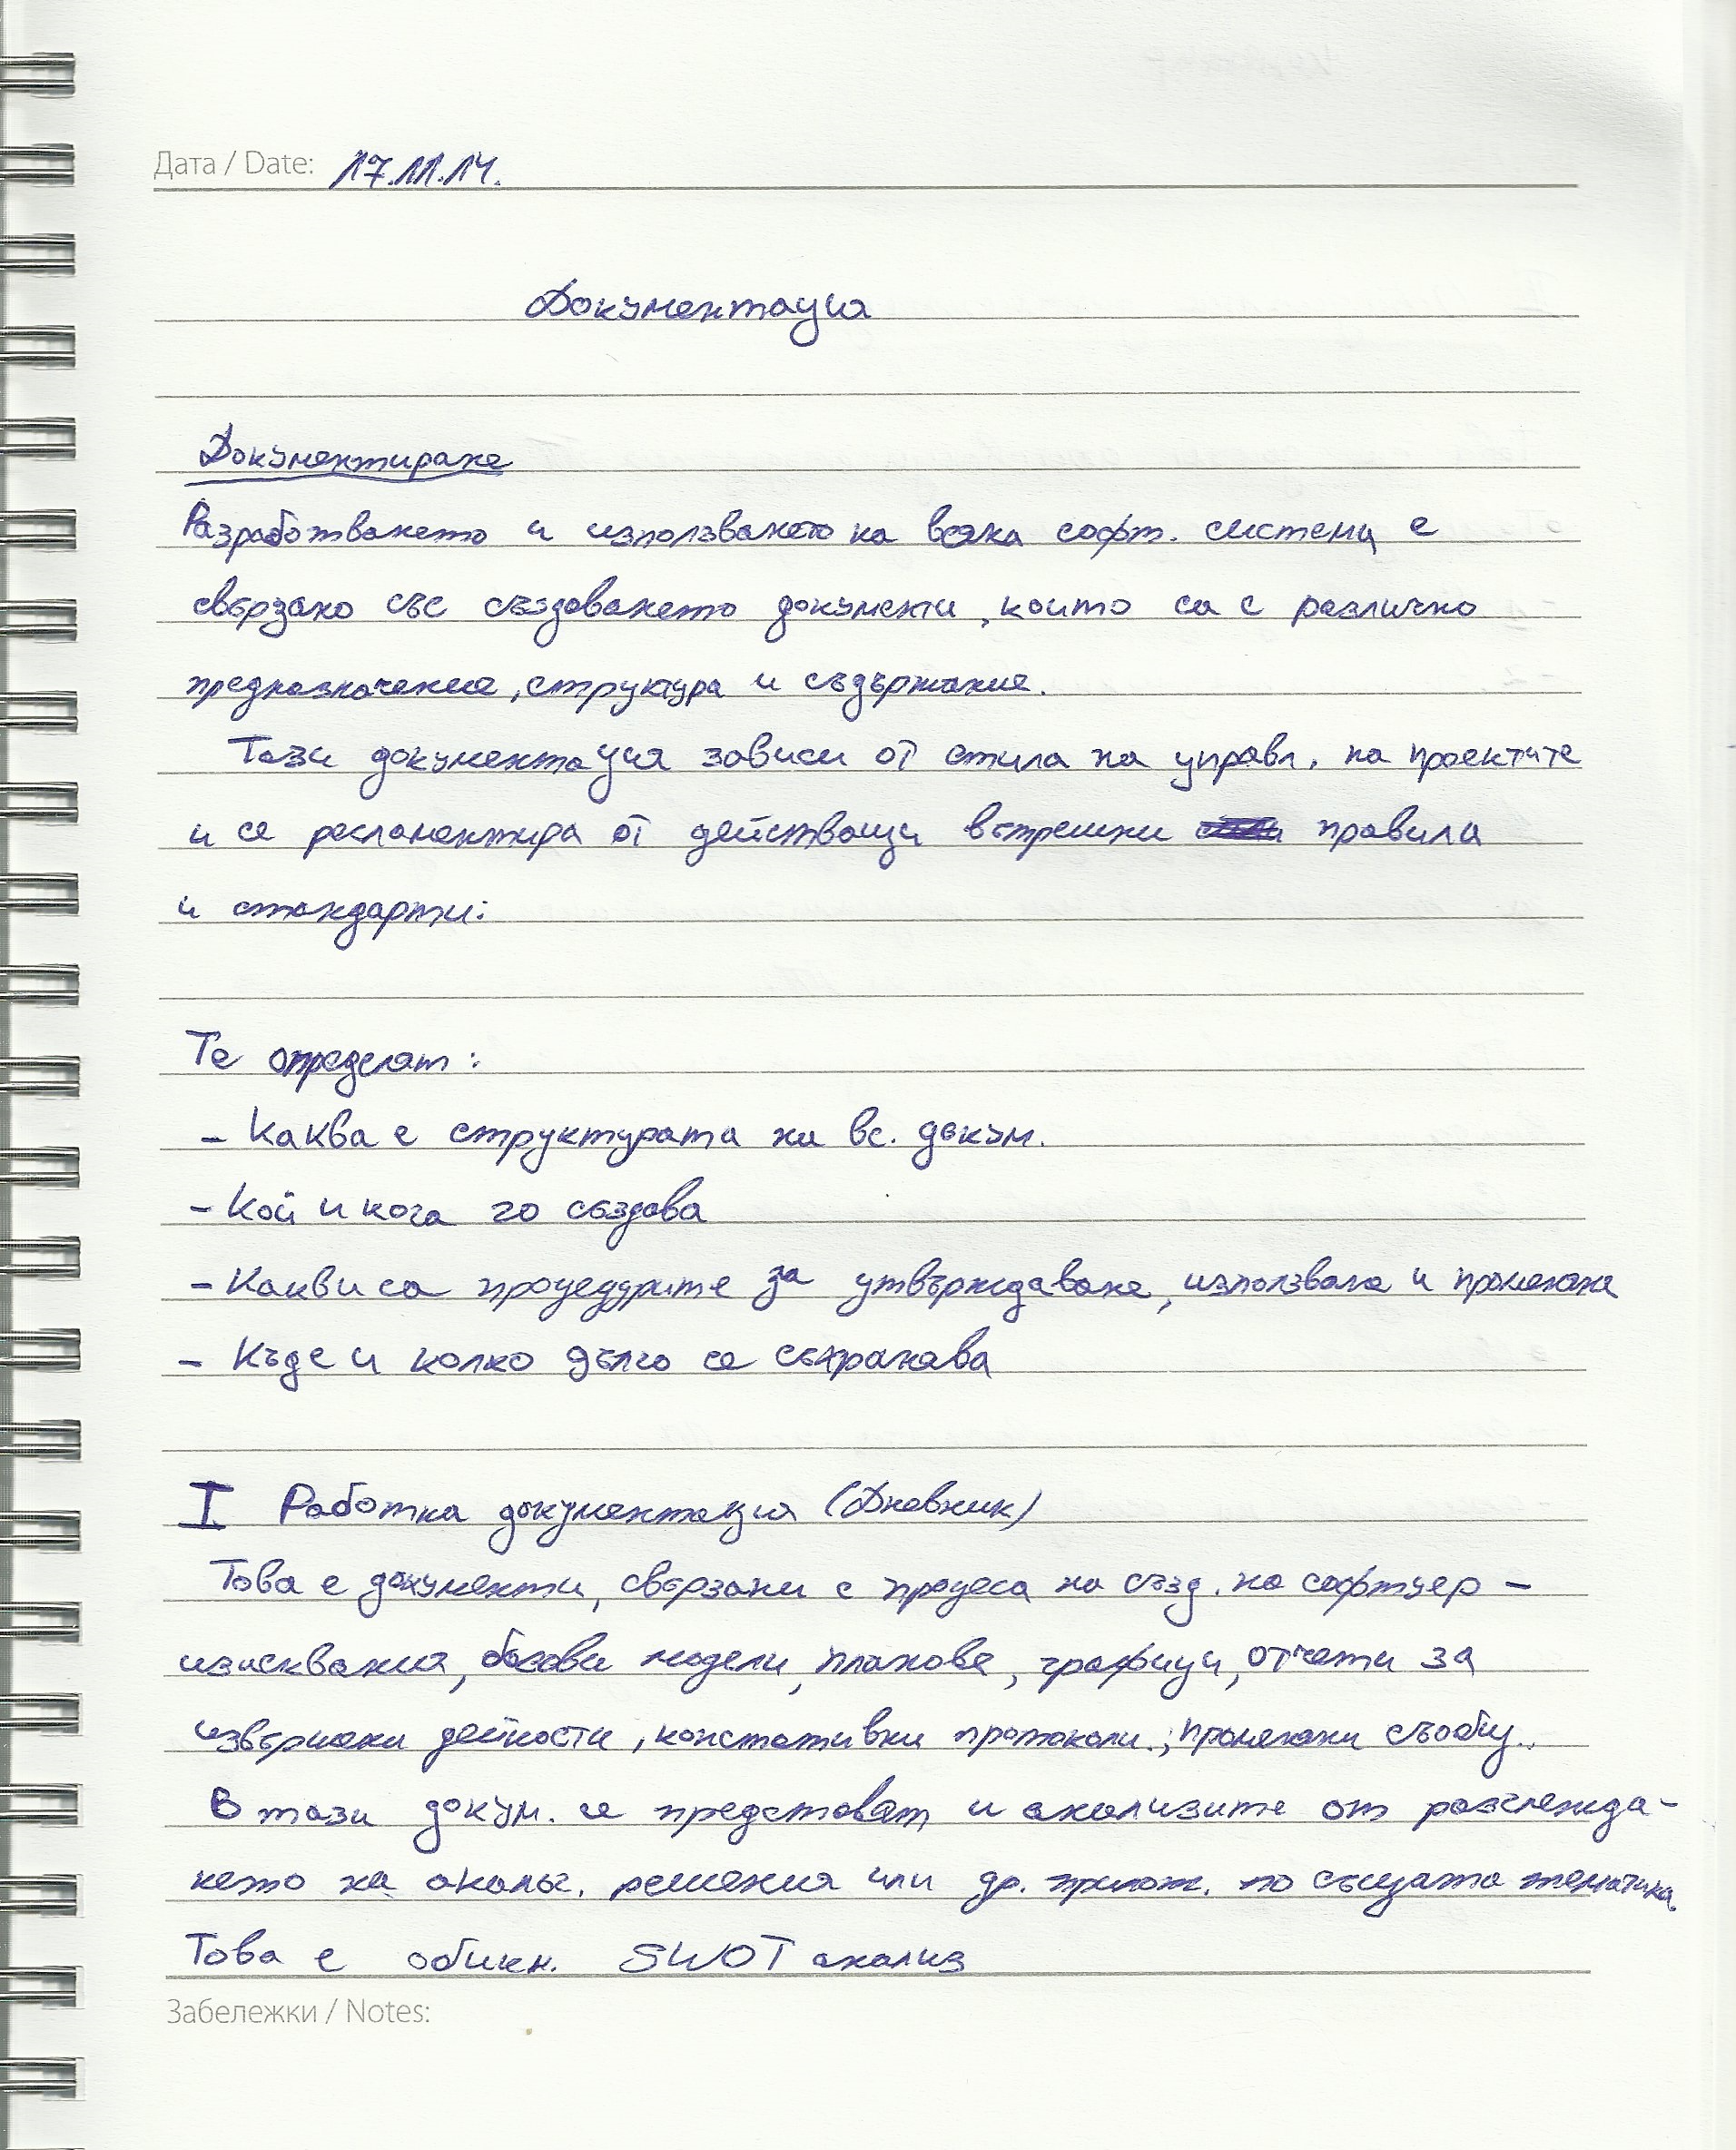 Дата / Date: 17.11.14.
Документация
Документиране
Разработването и използването на всяка софт. система е
свързано със създаването документи, които са с различно
предназначение, структура и съдържание.
Тази документация зависи от стила на управл. на проектите
и се регламентира от действащи вътрешни правила
и стандарти:
Те определят:
- Каква е структурата на вс. докум.
- Кой и кога го създава
- Какви са процедурите за утвърждаване, използване и промяна
- Къде и колко дълго се съхранява
I Работна документация (Дневник)
Това е документи, свързани с процеса на създ. на софтуер -
изисквания, базови модели, планове, графици, отчети за
извършени дейности, констативни протоколи.; променени съобщ..
В тази докум. се представят и анализите от разглежда-
нето на аналог. решения или др. прилож. по същата тематика.
Това е обикн. SWOT анализ
Забележки / Notes: